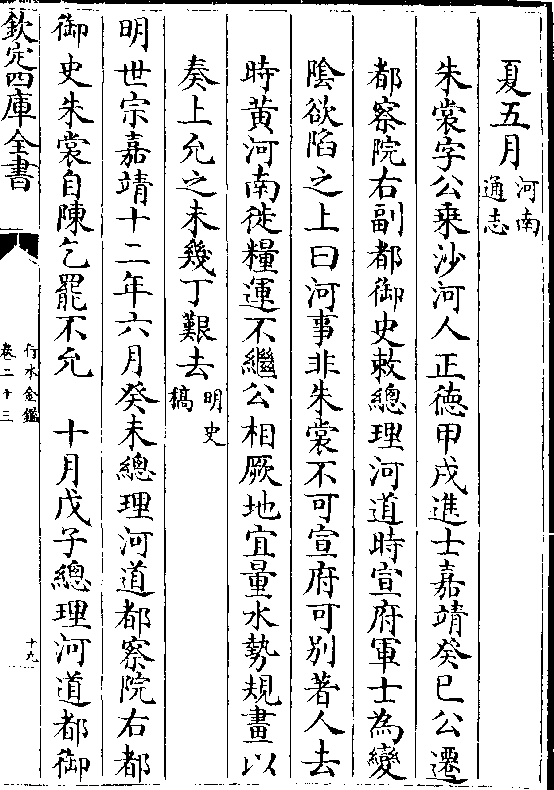 夏五月河南通志
朱裳字公乘沙河人正德甲戌進士嘉靖癸巳公遷
都察院右副都御史敕總理河道時宣府軍士為變
陰欲陷之上曰河事非朱裳不可宣府可别著人去
時黄河南徙糧運不繼公相厥地宜量水勢規畫以
奏上允之未幾丁艱去明史稿
明世宗嘉靖十二年六月癸未總理河道都察院右都
御史朱裳自陳乞罷不允　十月戊子總理河道都御
欽定四庫全書
行水金鑑
卷二十三
十九